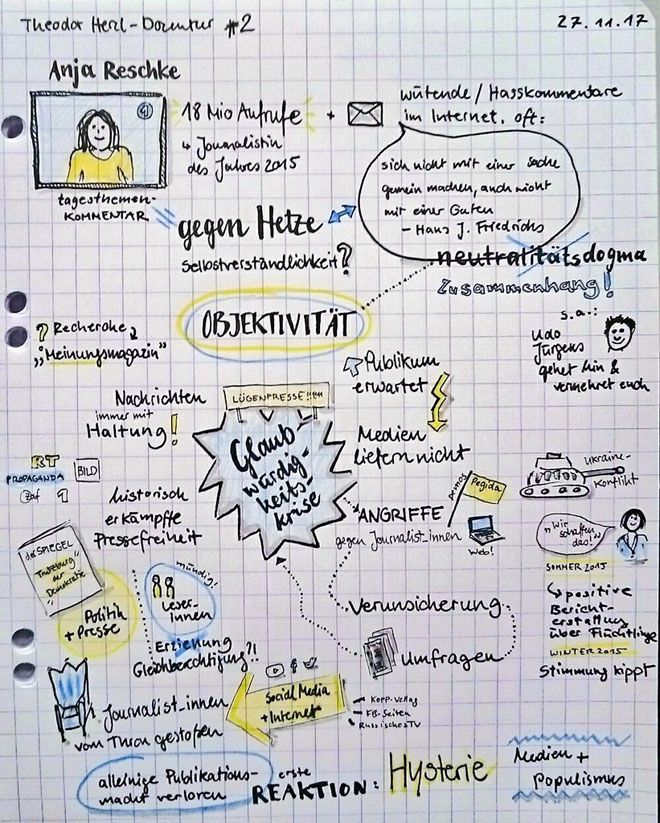 Theodor Herzl-Dozentur #2
27.11.17
Anja Reschke
18 Mio Aufrufe +
↳ Journalistin
des Jahres 2015
wütende / Hasskommentare
im Internet, oft:
sich nicht mit einer Sache
gemein machen, auch nicht
mit einer Guten
- Hans J. Friedrichs
tagesthemen-
KOMMENTAR
gegen Hetze
Selbstverständlichkeit?
neutralitätsdogma
Zusammenhang!
OBJEKTIVITÄT
s.a.:
Udo
Jürgens
geht hin &
vermehret euch
? Recherche
„Meinungsmagazin"
Publikum
erwartet
Medien
liefern nicht
Nachrichten
immer mit
Haltung!
LÜGENPRESSE!!!!!!
Glaub-
würdig-
keits-
krise
RT
PROPAGANDA
BILD
Zaf
historisch
erkämpfte
Pressefreiheit
ANGRIFFE
gegen Journalist_innen
Demos
Pegida
Web!
Ukraine-
Konflikt
„Wir
schaffen
das!"
SOMMER 2015
↳ positive
Bericht-
erstattung
über Flüchtlinge
WINTER 2015
Stimmung kippt
der SPIEGEL
"Trutzburg"
der
Demokratie
Politik
+ Presse
mündig!
Leser-
innen
Erziehung
Gleichberechtigung?!
Verunsicherung
Umfragen
Social Media
+ Internet
- Kopp-Verlag
- FB-Seiten
- Russisches TV
Journalist_innen
vom Thron gestoßen
alleinige Publikations-
macht verloren
erste
REAKTION: Hysterie
Medien +
Populismus